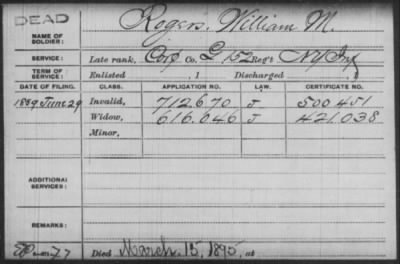 DEAD
NAME OF SOLDIER: Rogers, William M.
SERVICE: Late rank, Corp Co. G, 152 Reg't NY Inf
TERM OF SERVICE: Enlisted , 1 Discharged , 1
DATE OF FILING. CLASS. APPLICATION NO. LAW. CERTIFICATE NO.
1889 June 29 Invalid, 712.670 J 500 451
Widow, 616.046 J 421.038
Minor,
ADDITIONAL SERVICES:
REMARKS:
Died March 15, 1895, at